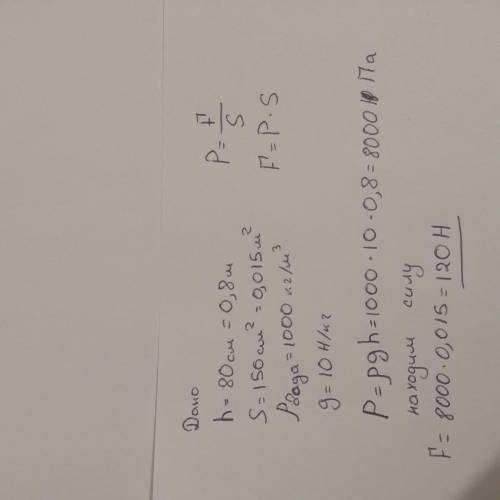 Дано
h = 80 см = 0,8 м
S = 150 см² = 0,015 м²
ρ вода = 1000 кг/м³
g = 10 Н/кг
P = F/S
F = P · S
P = ρgh = 1000 · 10 · 0,8 = 8000 Па
находим силу
F = 8000 · 0,015 = 120 Н